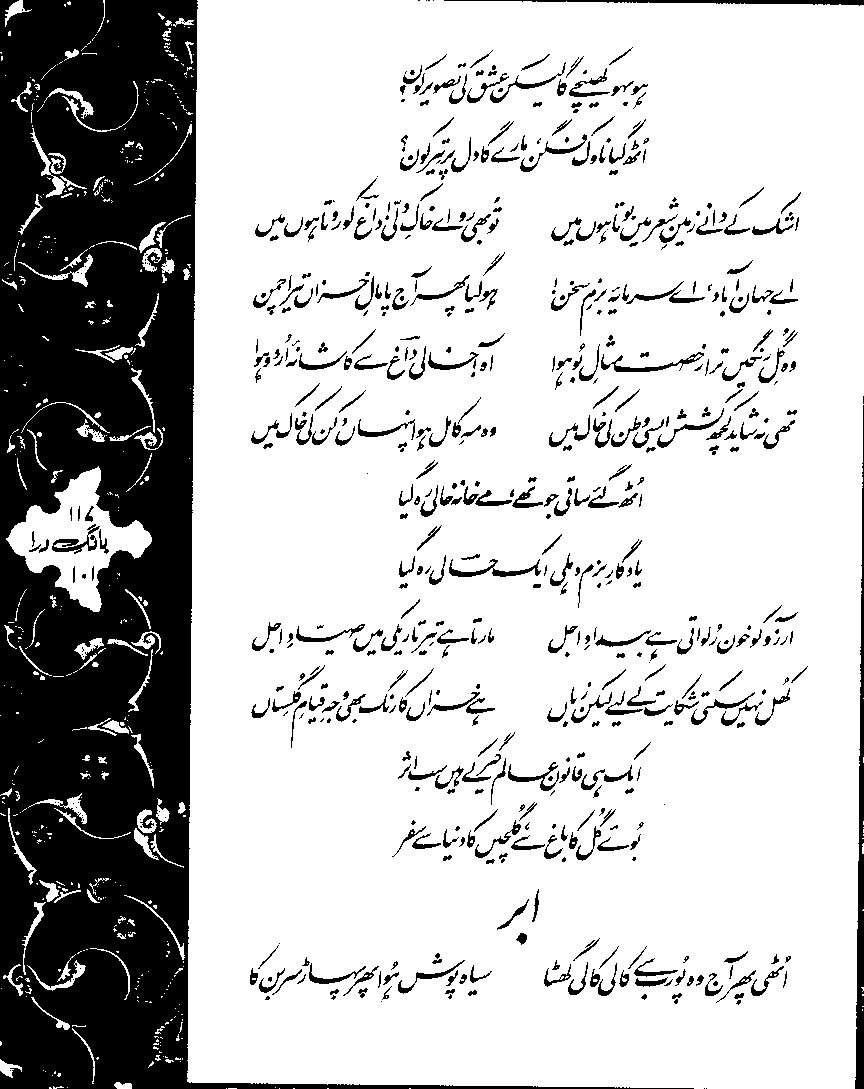 ہوبہو کھینچے گا لیکن عشق کی تصویر کون؟
اُٹھ گیا ناوک فگن، مارے گا دل پر تیر کون؟
اشک کے دانے زمینِ شعر میں بوتا ہوں میں تُو بھی رو اے خاکِ دلّی! داغ کو روتا ہوں میں
اے جہان آباد، اے سرمایۂ بزمِ سخن! ہوگیا پھر آج پامالِ خزاں تیرا چمن
وہ گُلِ رنگیں ترا رخصت مثالِ بُو ہوا آہ! خالی داغ سے کاشانۂ اُردو ہوا
تھی نہ شاید کچھ کشش ایسی وطن کی خاک میں وہ مہِ کامل ہوا پنہاں دکن کی خاک میں
اُٹھ گئے ساقی جو تھے، مے خانہ خالی رہ گیا
یادگارِ بزمِ دہلی ایک حالی رہ گیا
آرزو کو خون رُلواتی ہے بیدادِ اجل مارتا ہے تیر تاریکی میں صیّادِ اجل
کھُل نہیں سکتی شکایت کے لیے لیکن زباں ہے خزاں کا رنگ بھی وجہِ قیامِ گُلستاں
ایک ہی قانونِ عالم گیر کے ہیں سب اثر
بُوئے گُل کا باغ سے، گُلچیں کا دنیا سے سفر
ابر
اُٹھی پھر آج وہ پُورب سے کالی کالی گھٹا سیاہ پوش ہُوا پھر پہاڑ سربن کا
۱۱۷
بانگِ درا
۱۰۱